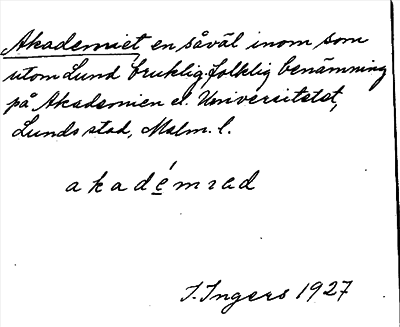 Akademiet en såväl inom som
utom Lund bruklig folklig benämning
på Akademien el. Universitetet,
Lunds stad, Malm. l.
akadémɪad
I. Ingers 1927